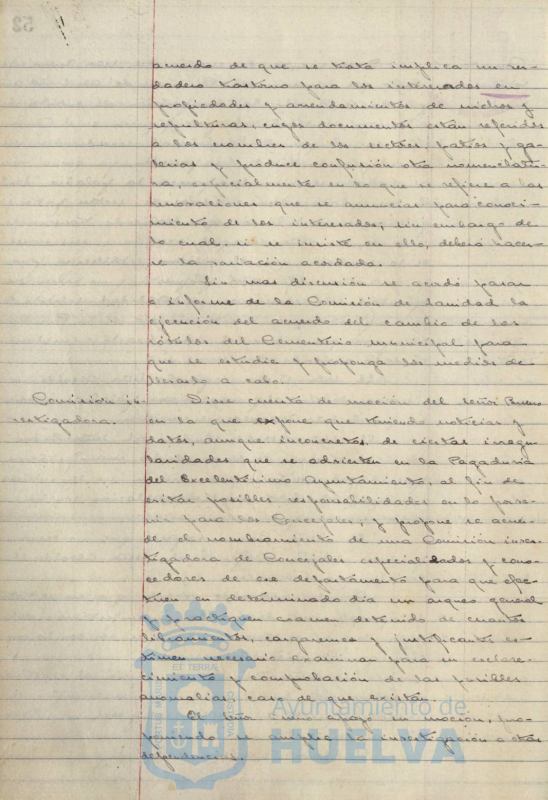 acuerdo de que se trata implica un ver-
dadero trastorno para los interesados en
propiedades y arrendamientos de nichos y
sepulturas, cuyos documentos están referidos
a los nombres de los sectores, patios y ga-
lerias y produce confusión otra nomenclatu-
ra, especialmente en lo que se refiere a las
renovaciones que se anuncian para conoci-
miento de los interesados, sin embargo de
lo cual, si se insiste en ello, deberá hacer-
se la variación acordada.
Sin mas discusión se acordó pasar
a informe de la Comisión de Sanidad la
ejecución del acuerdo del cambio de los
rótulos del Cementerio municipal para
que se estudie y proponga los medios de
llevarlo a cabo.
Comisión in-
vestigadora.
Diose cuenta de moción del señor Bueno
en la que expone que teniendo noticias y
datos, aunque inconcretos, de ciertas irregu-
laridades que se advierten en la Pagaduría
del Excelentísimo Ayuntamiento, al fin de
evitar posibles responsabilidades en lo porve-
nir para los Concejales, y propone se acuer-
de el nombramiento de una Comisión inves-
tigadora de Concejales especializados y cono-
cedores de ese departamento para que efec-
túen en determinado día un arqueo general
y practiquen examen detenido de cuantos
libramientos, cargaremes y justificantes es-
timen necesario examinar para un esclare-
cimiento y comprobación de las posibles
anomalías caso de que existan.
El señor apoyó su moción, pro-
poniendo se amplíe la investigación a otras
dependencias.
Ayuntamiento de
HUELVA